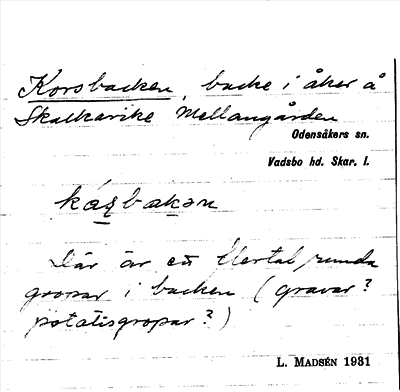 Korsbacken, backe i åker å
Skalkarike Mellangården
Odensåkers sn.
Vadsbo hd. Skar. l.
kás̱baḵən
Där är ett flertal runda
gropar i backen (gravar?
potatisgropar?)
L. MADSÉN 1931